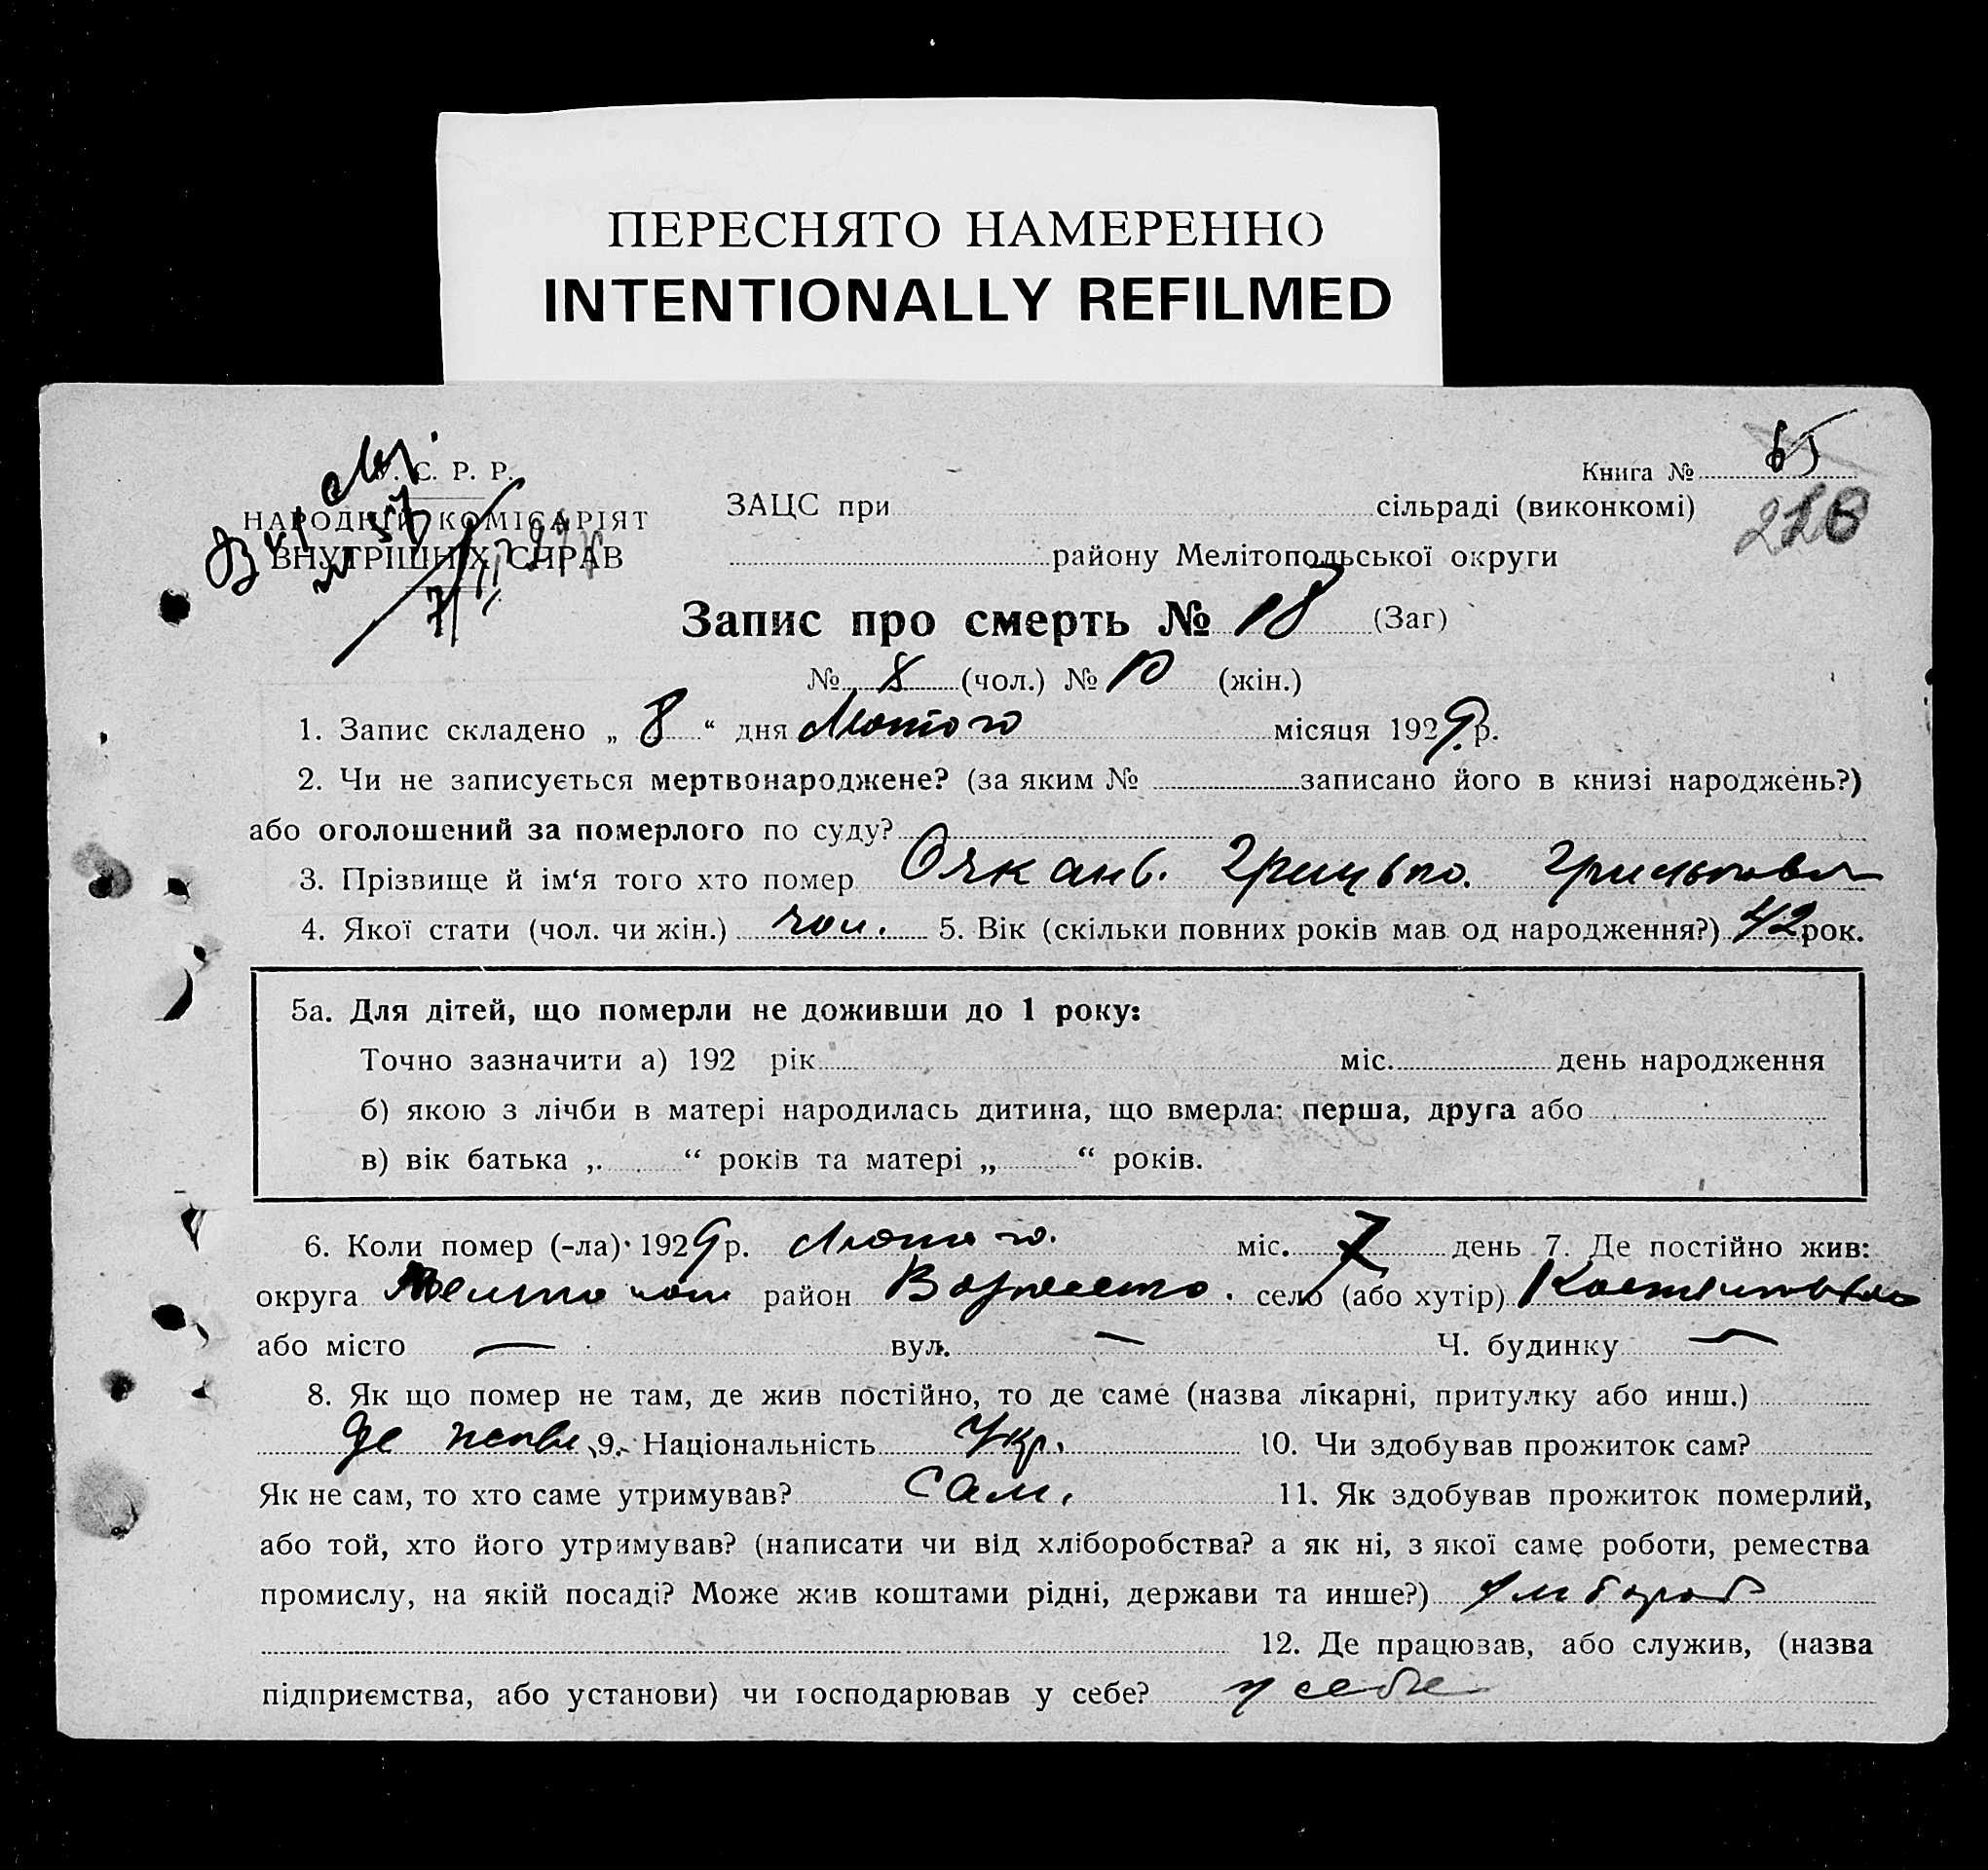 ПЕРЕСНЯТО НАМЕРЕННО
INTENTIONALLY REFILMED
У. С. Р. Р.
Книга № 65
НАРОДНІЙ КОМІСАРІЯТ
ВНУТРІШНІХ СПРАВ
ЗАЦС при сільраді (виконкомі)
району Мелітопольської округи
Запис про смерть № 18 (Заг)
№ 8 (чол.) № 10 (жін.)
1. Запис складено „ 8 “ дня Лютого місяця 1929 р.
2. Чи не записується мертвонароджене? (за яким № записано його в книзі народжень?)
або оголошений за померлого по суду?
3. Прізвище й ім‘я того хто помер Грицько
4. Якої стати (чол. чи жін.) чол. 5. Вік (скільки повних років мав од народження?) 42 рок.
5а. Для дітей, що померли не доживши до 1 року:
Точно зазначити а) 192 рік міс. день народження
б) якою з лічби в матері народилась дитина, що вмерла: перша, друга або
в) вік батька „ “ років та матері „ “ років.
6. Коли помер (-ла) 1929 р. Лютого. міс. 7 день 7. Де постійно жив:
округа район село (або хутір)
або місто — вул. — Ч. будинку —
8. Як що помер не там, де жив постійно, то де саме (назва лікарні, притулку або инш.)
де 9. Національність Укр. 10. Чи здобував прожиток сам?
Як не сам, то хто саме утримував? Сам. 11. Як здобував прожиток померлий,
або той, хто його утримував? (написати чи від хліборобства? а як ні, з якої саме роботи, ремества
промислу, на якій посаді? Може жив коштами рідні, держави та инше?) хлібороб
12. Де працював, або служив, (назва
підприємства, або установи) чи господарював у себе? у себе